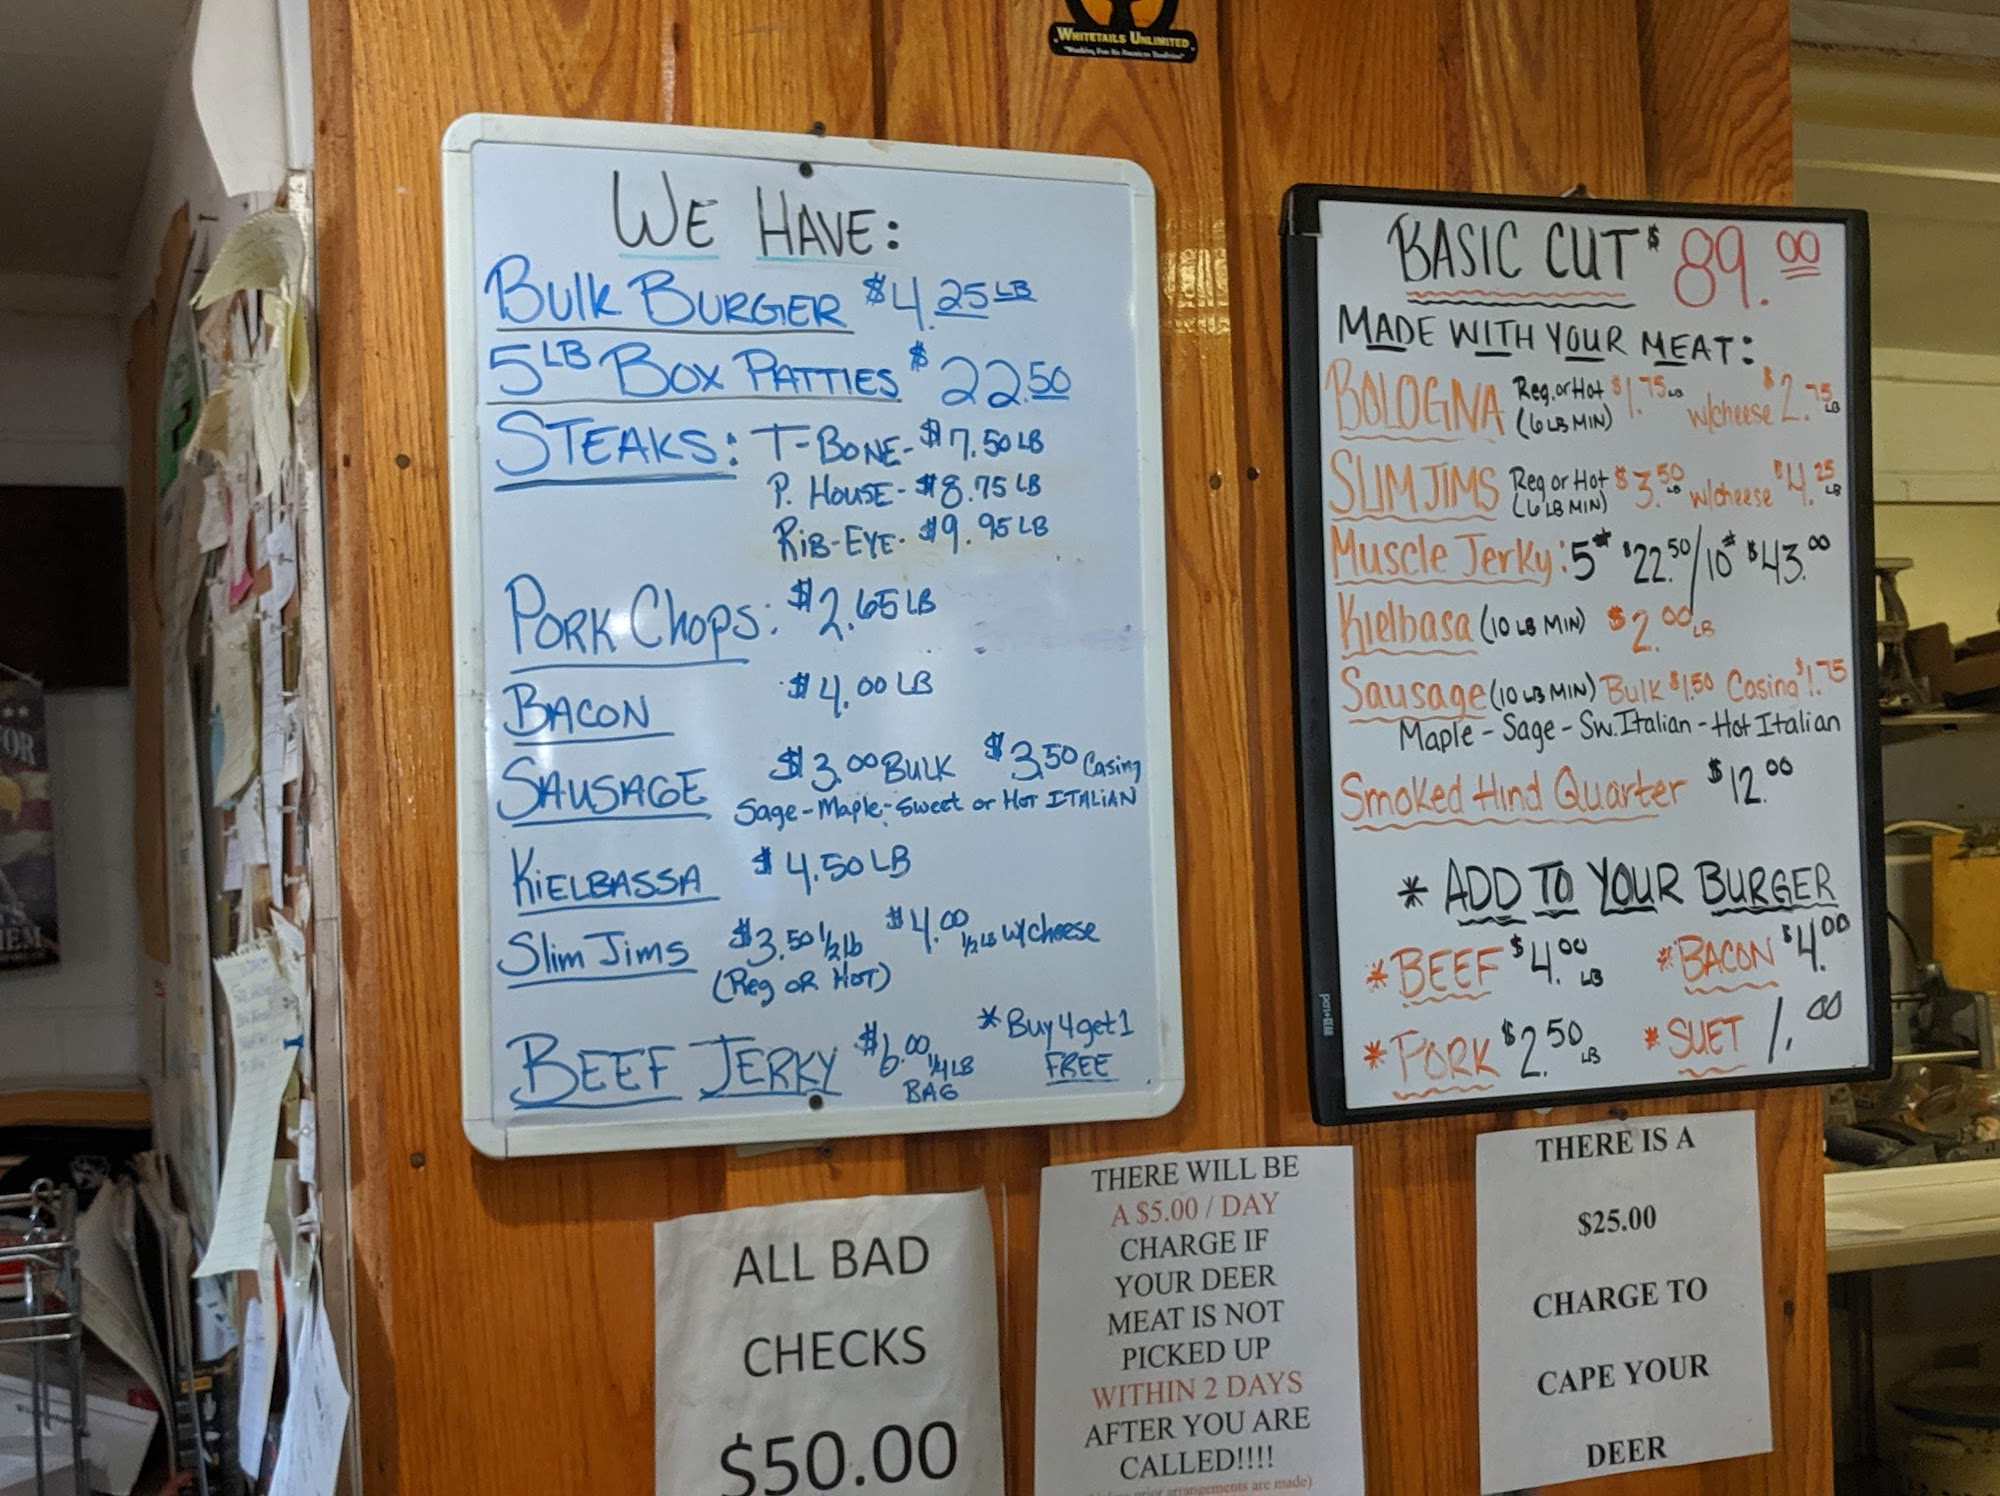 WHITETAILS UNLIMITED
"Working For An American Tradition"
WE HAVE:
BULK BURGER $4.25 LB
5 LB BOX PATTIES $22.50
STEAKS: T-BONE- $7.50 LB
P. HOUSE- $8.75 LB
RIB-EYE- $9.95 LB
PORK CHOPS: $2.65 LB
BACON $4.00 LB
SAUSAGE $3.00 BULK $3.50 Casing
Sage-Maple-Sweet or HOT ITALIAN
KIELBASSA $4.50 LB
Slim Jims $3.50 1/2 lb $4.00 1/2 LB w/cheese
(Reg OR HOT)
BEEF JERKY $6.00 1/4 LB BAG *Buy 4 get 1 FREE
BASIC CUT $89.00
MADE WITH YOUR MEAT:
BOLOGNA Reg. or Hot (6 LB MIN) $1.75 LB w/cheese $2.75 LB
SLIM JIMS Reg or Hot (6 LB MIN) $3.50 LB w/cheese $4.25 LB
Muscle Jerky: 5# $22.50/10# $43.00
Kielbasa (10 LB MIN) $2.00 LB
Sausage (10 LB MIN) Bulk $1.50 Casing $1.75
Maple - Sage - Sw. Italian - Hot Italian
Smoked Hind Quarter $12.00
* ADD TO YOUR BURGER
*BEEF $4.00 LB *BACON $4.00
*PORK $2.50 LB *SUET 1.00
ALL BAD
CHECKS
$50.00
THERE WILL BE
A $5.00 / DAY
CHARGE IF
YOUR DEER
MEAT IS NOT
PICKED UP
WITHIN 2 DAYS
AFTER YOU ARE
CALLED!!!!
prior arrangements are made)
THERE IS A
$25.00
CHARGE TO
CAPE YOUR
DEER